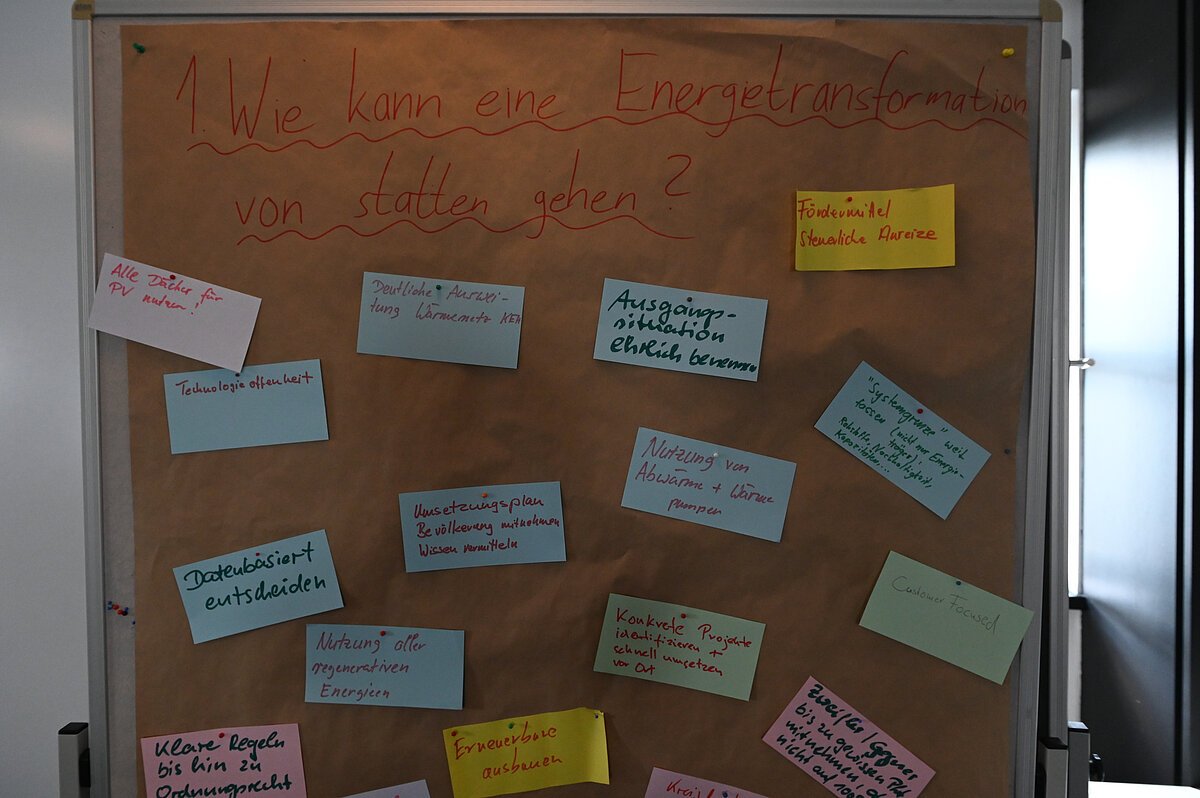 1. Wie kann eine Energietransformation
von statten gehen?
Fördermittel
Steuerliche Anreize
Alle Dächer für
PV nutzen!
Deutliche Auswei-
tung Wärmenetz
Ausgangs-
situation
ehrlich benennen
Technologieoffenheit
"Systemgrenze" weit
fassen (nicht nur Energie-
träger):
Rohstoffe, Nachhaltigkeit,
Kapazitäten,...
Nutzung von
Abwärme + Wärme
pumpen
Umsetzungsplan
Bevölkerung mitnehmen
Wissen vermitteln
Datenbasiert
entscheiden
Customer Focused
Konkrete Projekte
identifizieren +
schnell umsetzen
vor Ort
Nutzung aller
regenerativen
Energien
Zweifler/Gegner
bis zu gewissem
mitnehmen,
nicht auf
Klare Regeln
bis hin zu
Ordnungsrecht
Erneuerbare
ausbauen